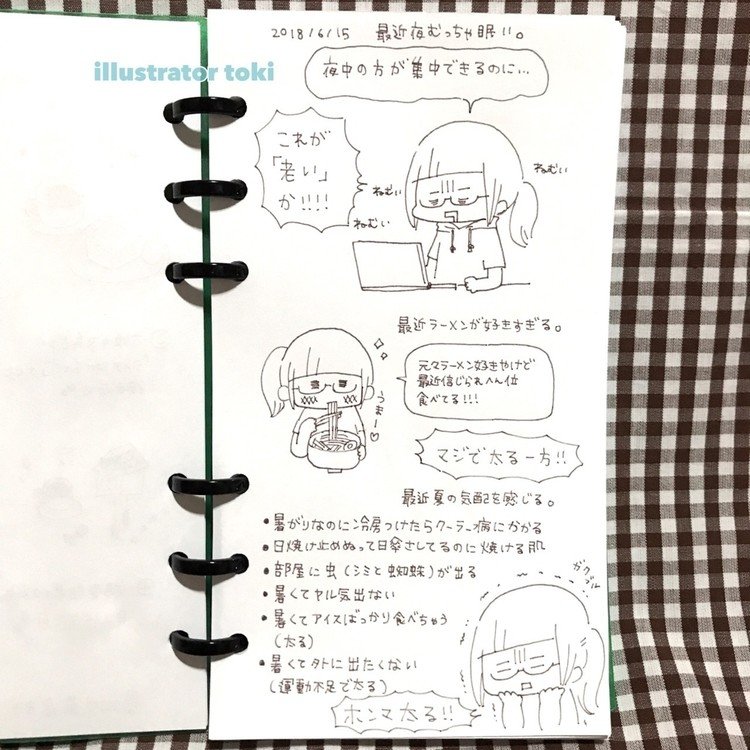 illustrator toki
2018/6/15 最近夜むっちゃ眠い。
夜中の方が集中できるのに…
これが
「老い」
か!!!!
ねむい
ねむい
ねむい
最近ラーメンが好きすぎる。
元々ラーメン好きやけど
最近信じられへん位
食べてる!!!
うまー♡
マジで太る一方!!
最近夏の気配を感じる。
・暑がりなのに冷房つけたらクーラー病にかかる
・日焼け止めぬって日傘さしてるのに焼ける肌
・部屋に虫(シミと蜘蛛)が出る
・暑くてヤル気出ない
・暑くてアイスばっかり食べちゃう
(太る)
・暑くて外に出たくない
(運動不足で太る)
ガクブル
ホンマ太る!!